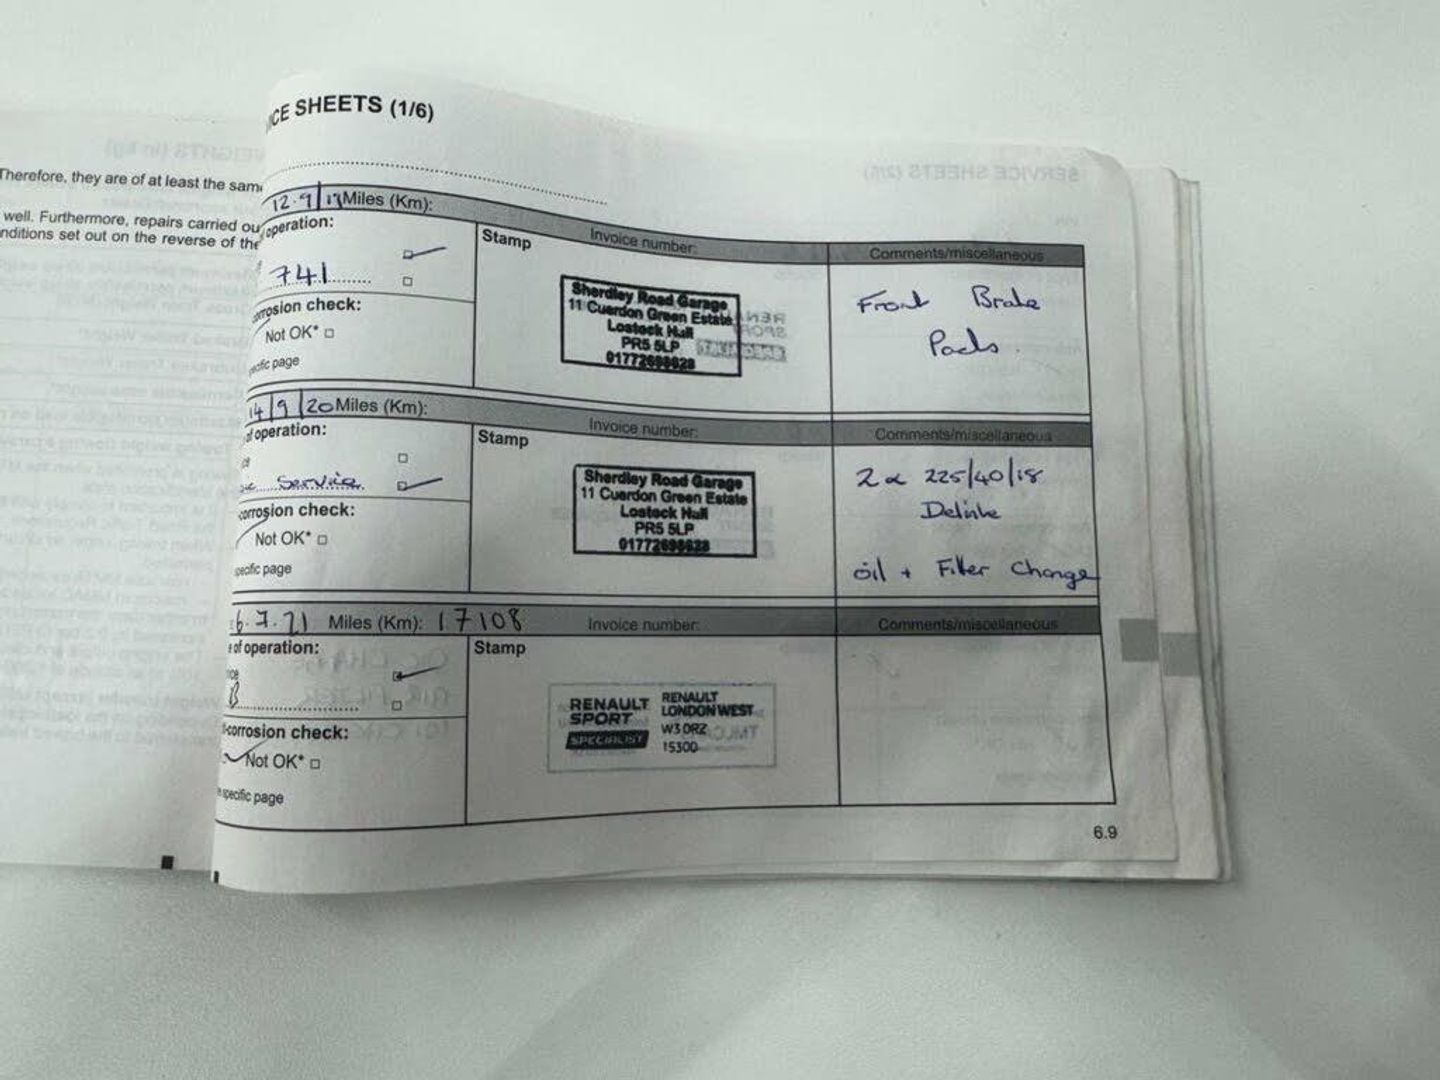 ICE SHEETS (1/6)
Therefore, they are of at least the sam
well. Furthermore, repairs carried ou
nditions set out on the reverse of the
Miles (Km):
operation:
741
orrosion check:
Not OK*
ecific page
Stamp
Invoice number:
Sherdley Road Garage
11 Cuerdon Green Estate
Lostock Hall
PR5 5LP
01772698628
Comments/miscellaneous
Front Brake
Pads.
14/9/20 Miles (Km):
of operation:
Service
corrosion check:
Not OK*
specific page
Stamp
Invoice number:
Sherdley Road Garage
11 Cuerdon Green Estate
Lostock Hall
PR5 5LP
01772698628
Comments/miscellaneous
2 x 225/40/18
Delinte
oil + Filter Change
6.7.21 Miles (Km): 17108
of operation:
B
-corrosion check:
Not OK*
specific page
Invoice number:
Stamp
RENAULT
SPORT
SPECIALIST
RENAULT
LONDON WEST
W3 0RZ
15300
Comments/miscellaneous
6.9